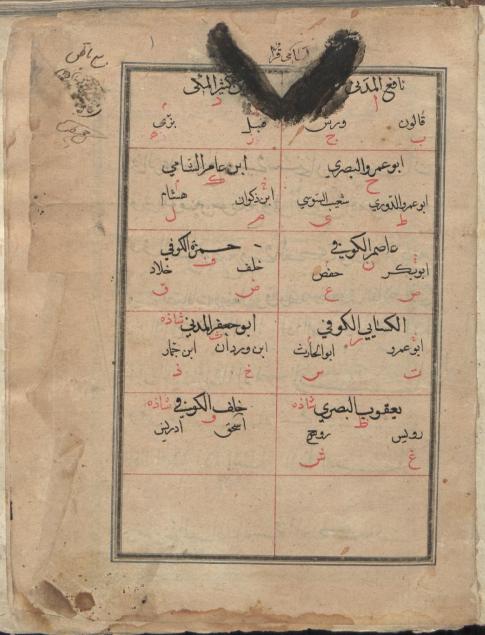 ١
اسامی قرا
نافع المدني
ا
قالون ورش
ب ج
كثير المكي
د
بزى قنبل
ه ز
ابو عمرو البصري
ح
ابو عمرو الدوري شعيب السوسي
ط ى
ابن عامر الشامي
ك
هشام ابن ذكوان
ل م
عاصم الكوفي
ن
ابو بكر حفص
ص ع
حمزة الكوفي
ف
خلف خلاد
ض ق
الكسايي الكوفي
ر
ابو عمرو ابو الحارث
ت س
ابو جعفر المدني شاذه
ث
ابن وردان ابن جماز
خ ذ
يعقوب البصري شاذه
ظ
رويس روح
غ ش
خلف الكوفي شاذه
و
اسحق ادريس